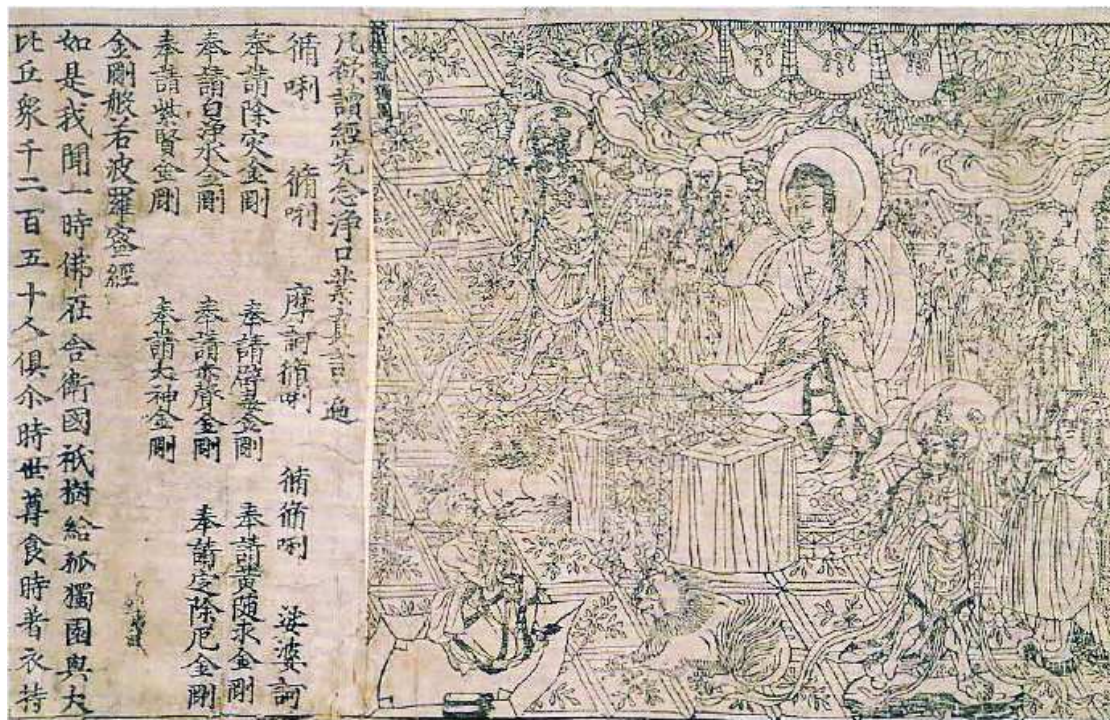 凡欲讀經先念淨口業真言 遍
脩唎 脩唎 摩訶脩唎 脩脩唎 娑婆訶
奉請除灾金剛 奉請辟毒金剛 奉請黄随求金剛
奉請白淨水金剛 奉請赤聲金剛 奉請定除厄金剛
奉請紫賢金剛 奉請大神金剛
金剛般若波羅蜜經
如是我聞一時佛在舍衛國祇樹給孤獨園與大
比丘衆千二百五十人俱尒時世尊食時著衣持